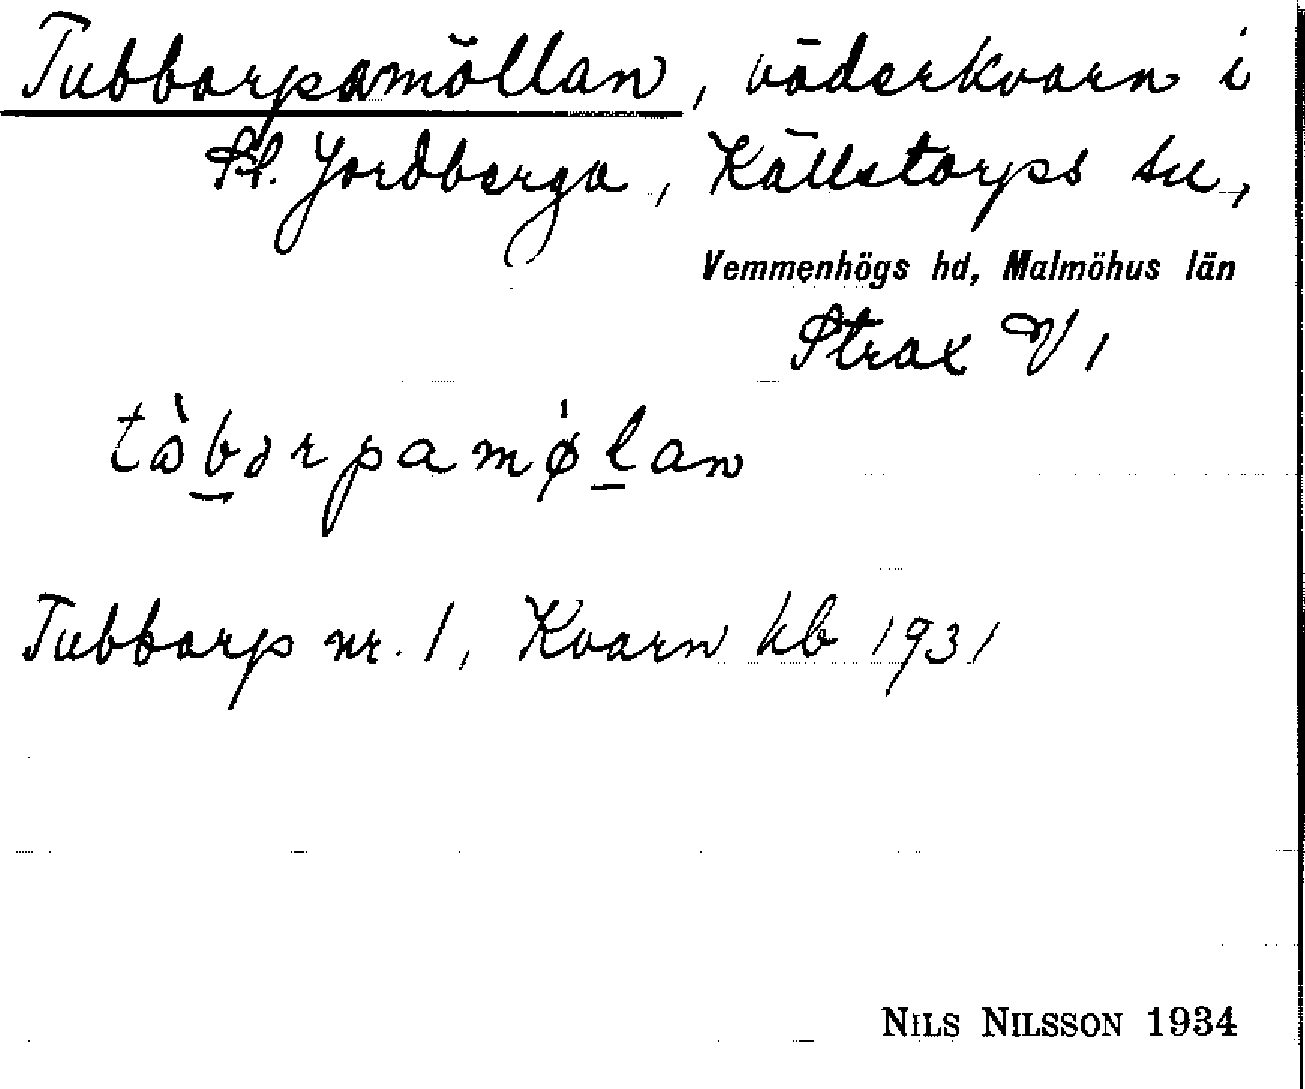 Tubbarpamöllan, väderkvarn i
St. Jordberga, Källstorps sn,
Vemmenhögs hd, Malmöhus län
Strax V 1
tòbarpamølan
Tubbarp nr. 1, Kvarn kb 1931
NILS NILSSON 1934